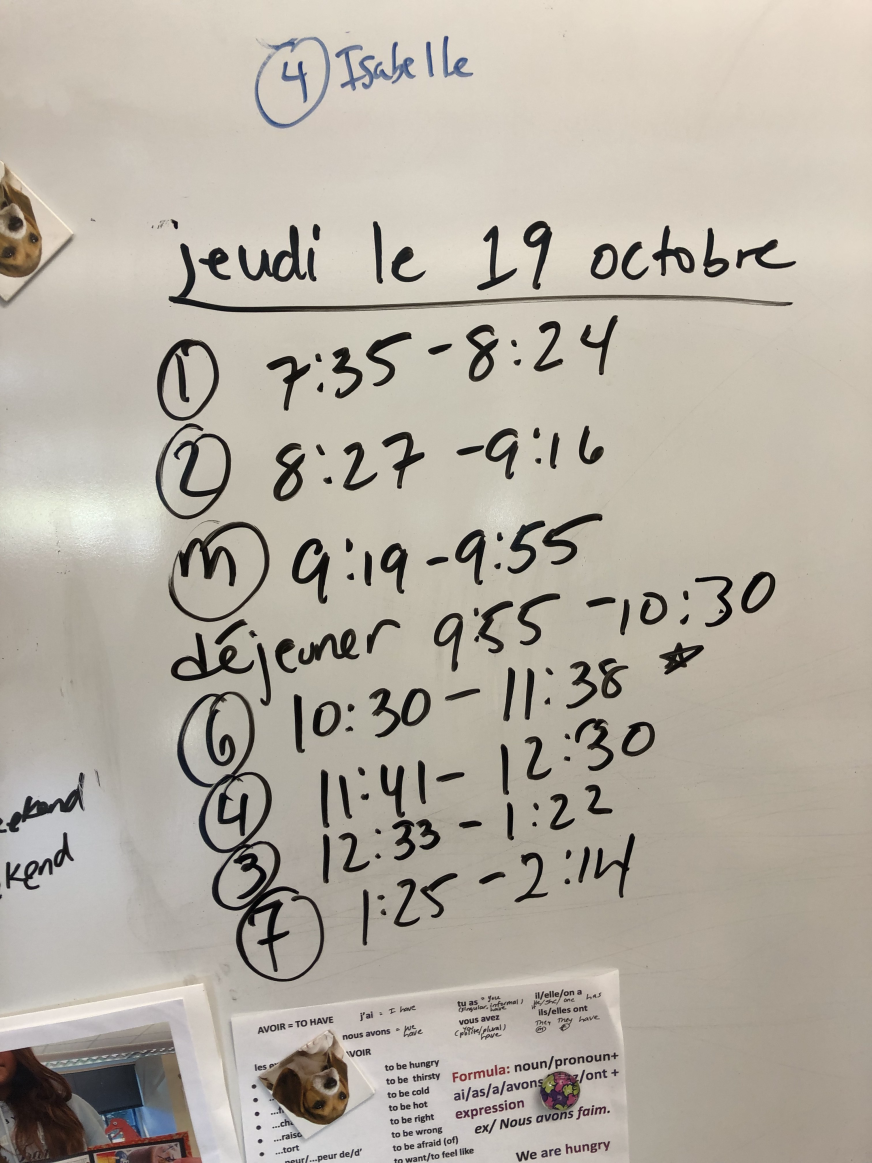 4 Isabelle
jeudi le 19 octobre
1 7:35 - 8:24
2 8:27 - 9:16
m 9:19 - 9:55
déjeuner 9:55 - 10:30
6 10:30 - 11:38
4 11:41 - 12:30
3 12:33 - 1:22
7 1:25 - 2:14
kend
AVOIR = TO HAVE
j'ai = I have
nous avons = we have
tu as = you
(singular, informal)
have
vous avez
(polite/plural)
have
il/elle/on a has
he/she/one
ils/elles ont
They They have
VOIR
to be hungry
to be thirsty
to be cold
to be hot
to be right
to be wrong
to be afraid (of)
to want/to feel like
...rais
...tort
peur/...peur de/d'
Formula: noun/pronoun+
ai/as/a/avons z/ont +
expression
ex/ Nous avons faim.
We are hungry